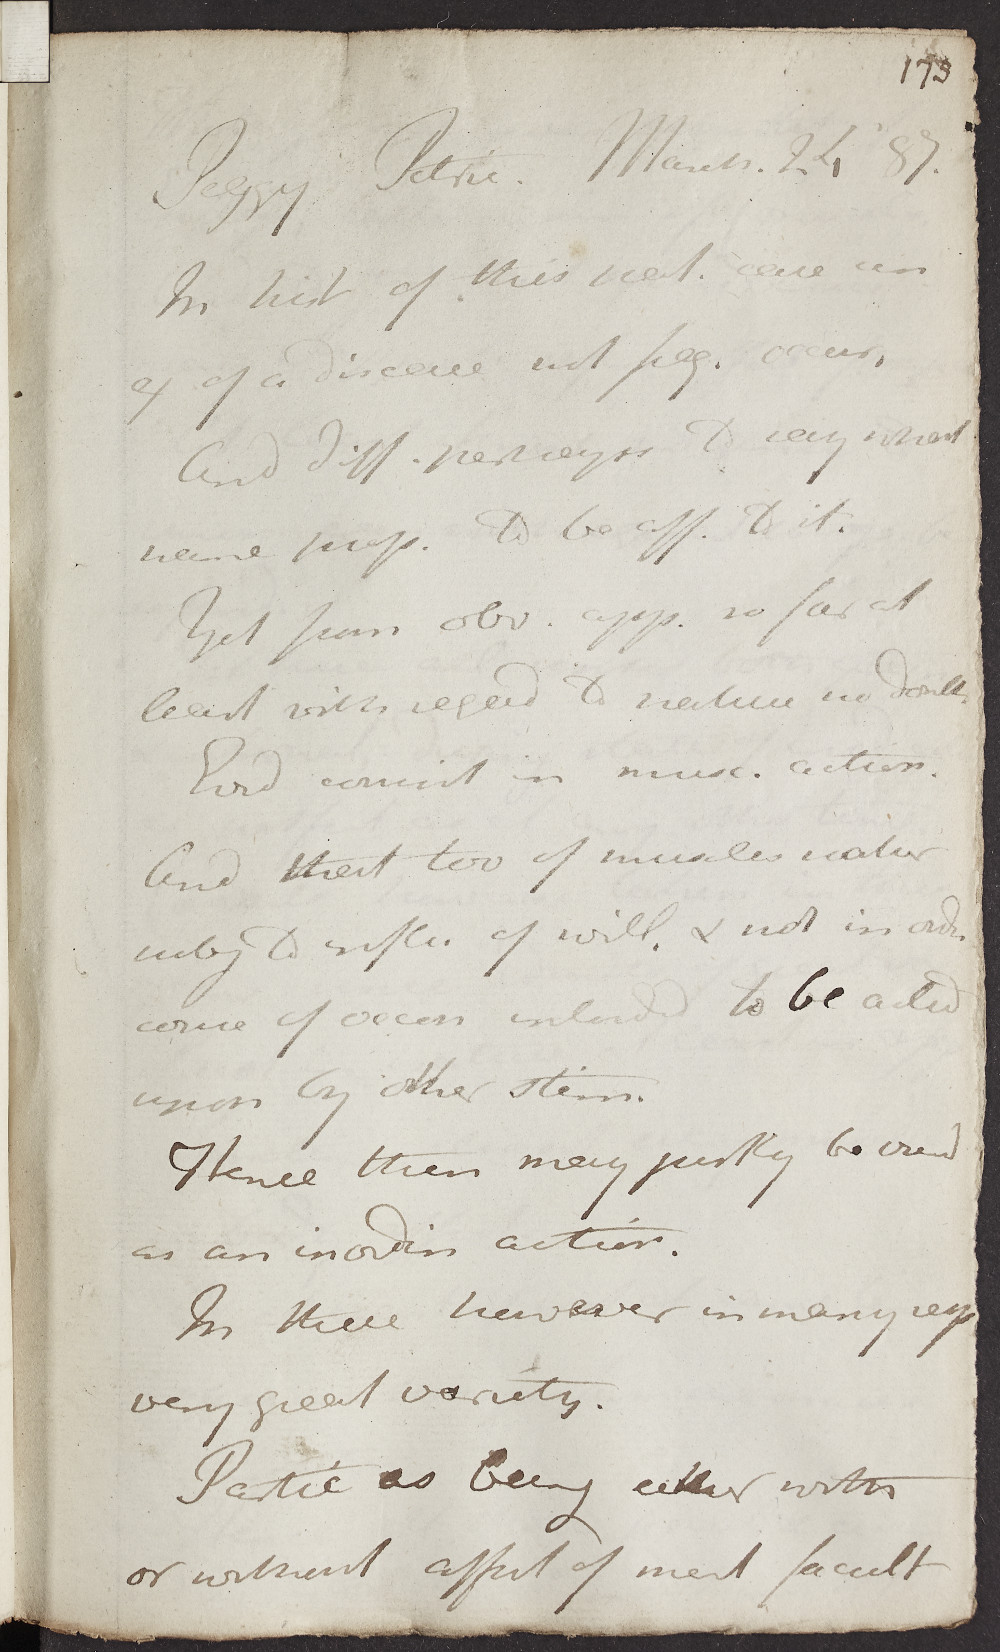 173
Peggy Petrie. March. 24 87.
In hist of this pat. case an
ex of a disease not freq. occur.
And diff. perhaps to say what
name prop. to be aff. to it.
Yet from obv. app. so far at
least with regard to nature no doubt.
Evid consist in musc. action.
And that too of muscles natur
subj to influ. of will. & not in ordin
course of oecon intended to be acted
upon by other stim.
Hence then may justly be
as an inordin action.
In these however in many resp
very great variety.
Partic as being either with
or without affect of ment facult